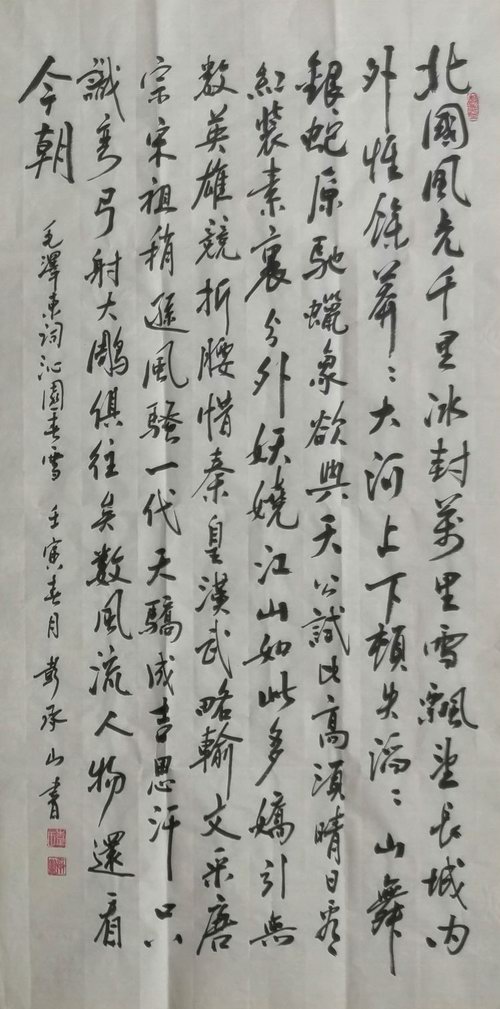 北國風光千里冰封萬里雪飄望長城内
外惟餘莽〻大河上下頓失滔〻山舞
銀蛇原馳蠟象欲與天公試比高須晴日看
紅裝素裹分外妖嬈江山如此多嬌引無
數英雄競折腰惜秦皇漢武略輸文采唐
宗宋祖稍遜風騷一代天驕成吉思汗只
識彎弓射大鵰俱往矣數風流人物還看
今朝
毛澤東詞沁園春雪 壬寅春月 彭承山書